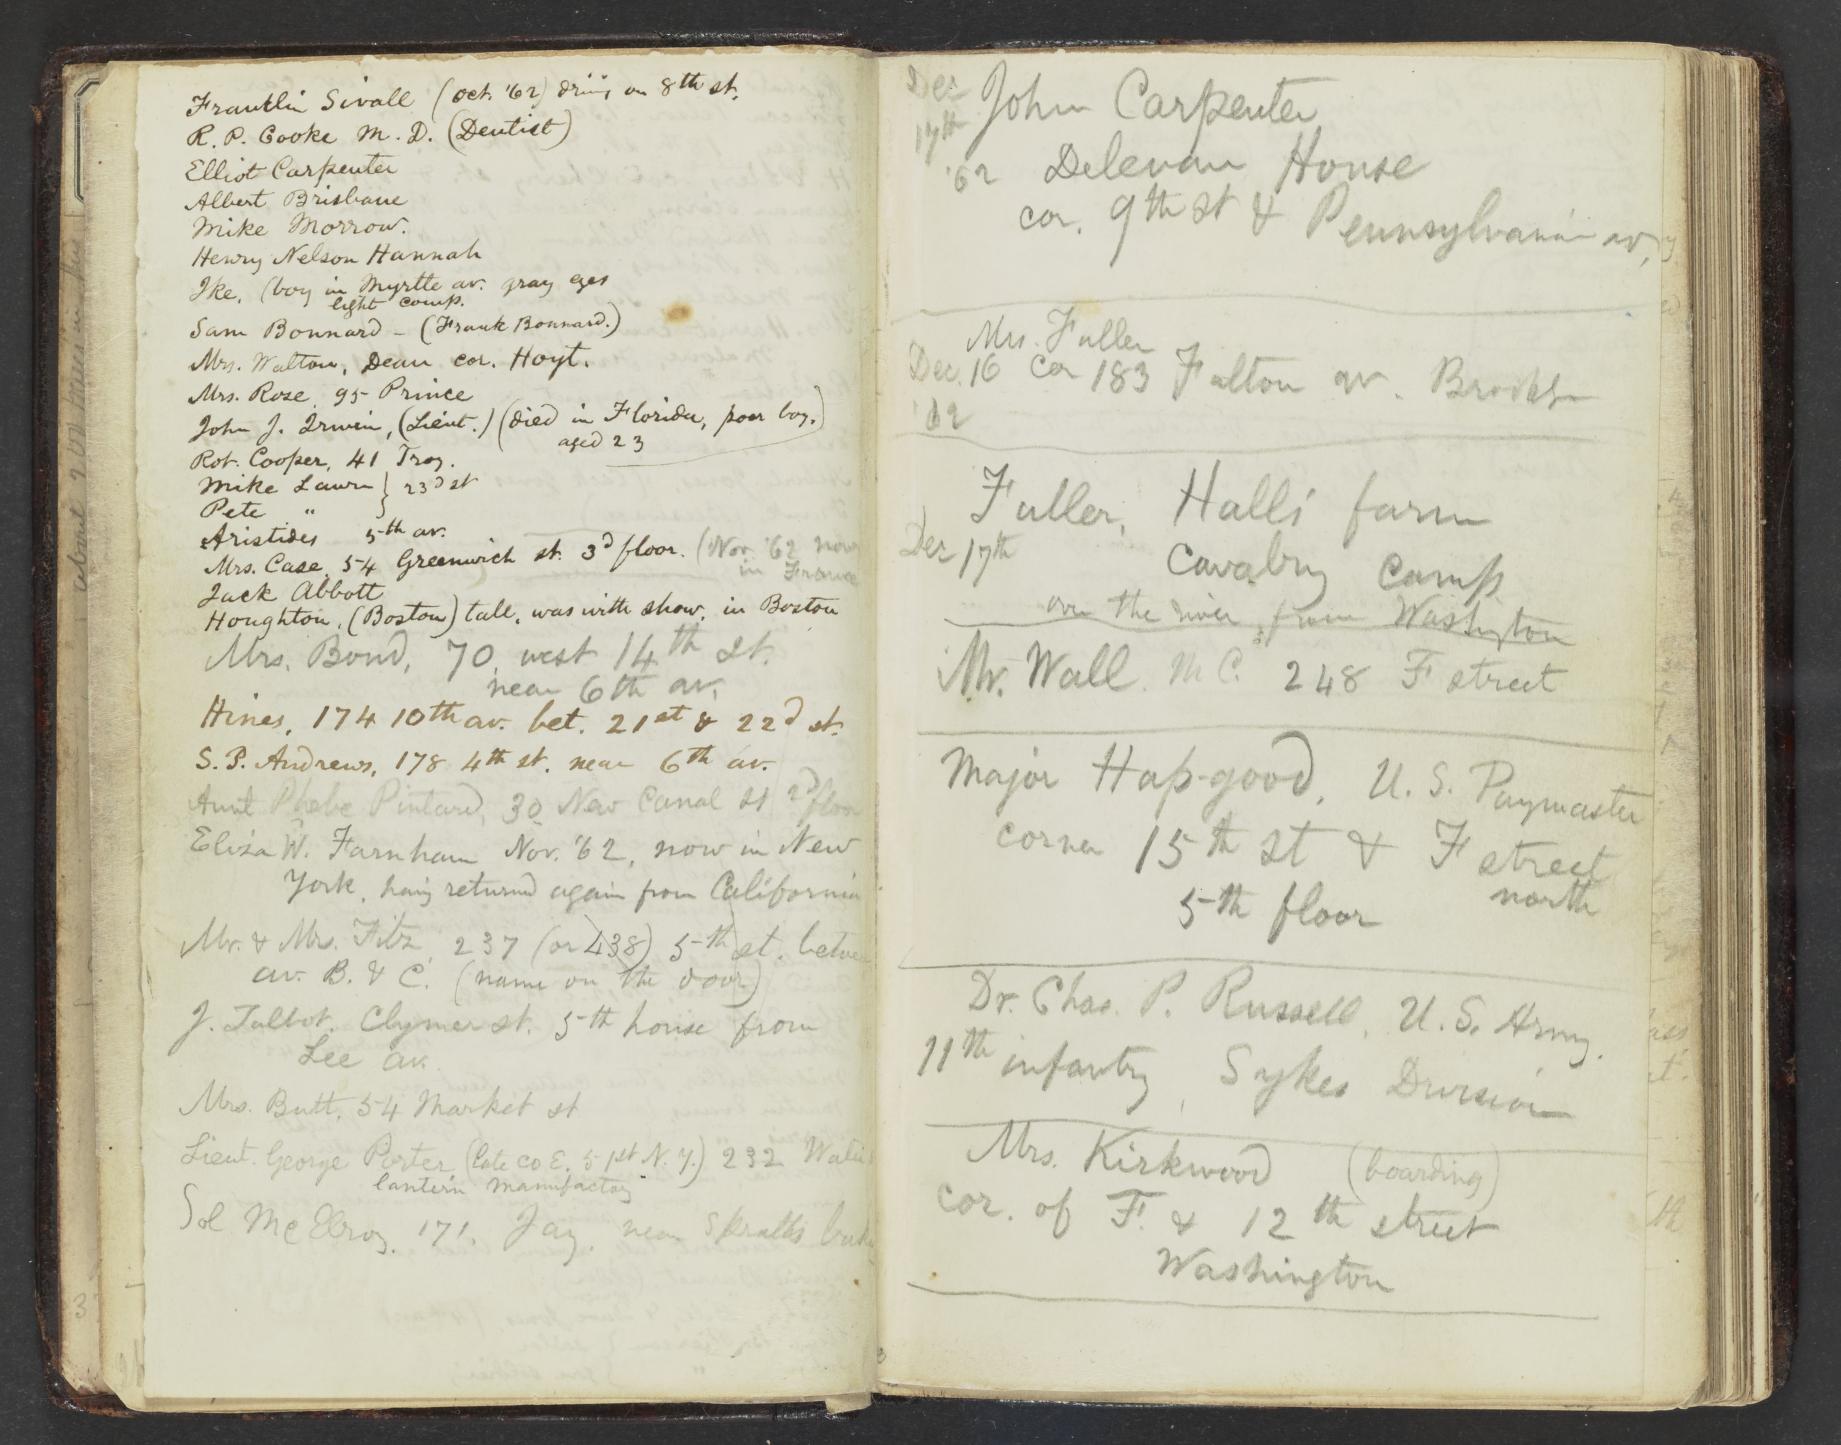 Franklin Sivall (Oct. '62) driv'g on 8th st.
R. P. Cooke M. D. (Dentist)
Elliot Carpenter
Albert Brisbane
Mike Morrow.
Henry Nelson Hannah
Ike, (boy in Myrtle av. gray eyes
light comp.
Sam Bonnard – (Frank Bonnard.)
Mrs. Walton, Dean cor. Hoyt.
Mrs. Rose, 95 Prince
John J. Irwin, (Lieut.) (died in Florida, poor boy.)
aged 23
Rob. Cooper, 41 Troy.
Mike Lawn } 23d st
Pete "
Aristides 5th av.
Mrs. Case, 54 Greenwich st. 3d floor. (Nov. '62 now
in France
Jack Abbott
Houghton, (Boston) tall, was with show, in Boston
Mrs. Bond, 70, west 14th st.
near 6th av.
Hines, 174 10th av. bet. 21st & 22d st.
S. P. Andrews, 178 4th st. near 6th av.
Aunt Phebe Pintard, 30 New Canal st 2d floor
Eliza W. Farnham Nov. '62, now in New
York, hav'g returned again from California
Mr. & Mrs. Fitz 237 (or 438) 5th st. between
av. B. & C. (name on the door)
J. Talbot. Clymer st. 5th house from
Lee av.
Mrs. Butt, 54 Market st
Lieut. George Porter (late co E. 51st N. Y.) 232
lantern manufactory
Sol McElroy, 171, Jay, near
Dec
17th
'62
John Carpenter
Delevan House
cor. 9th st & Pennsylvania av.
Mrs. Fuller
Dec. 16 cor 183 Fulton av. Brooklyn
'62
Fuller, Halls farm
Dec 17th Cavalry Camp
over the river from Washington
Mr. Wall. M C. 248 F street
Major Hap-good, U. S. Paymaster
corner 15th st & F street
north
5th floor
Dr. Chas. P. Russell, U. S. Army.
11th infantry, Sykes Division
Mrs. Kirkwood (boarding)
cor. of F. & 12th street
Washington